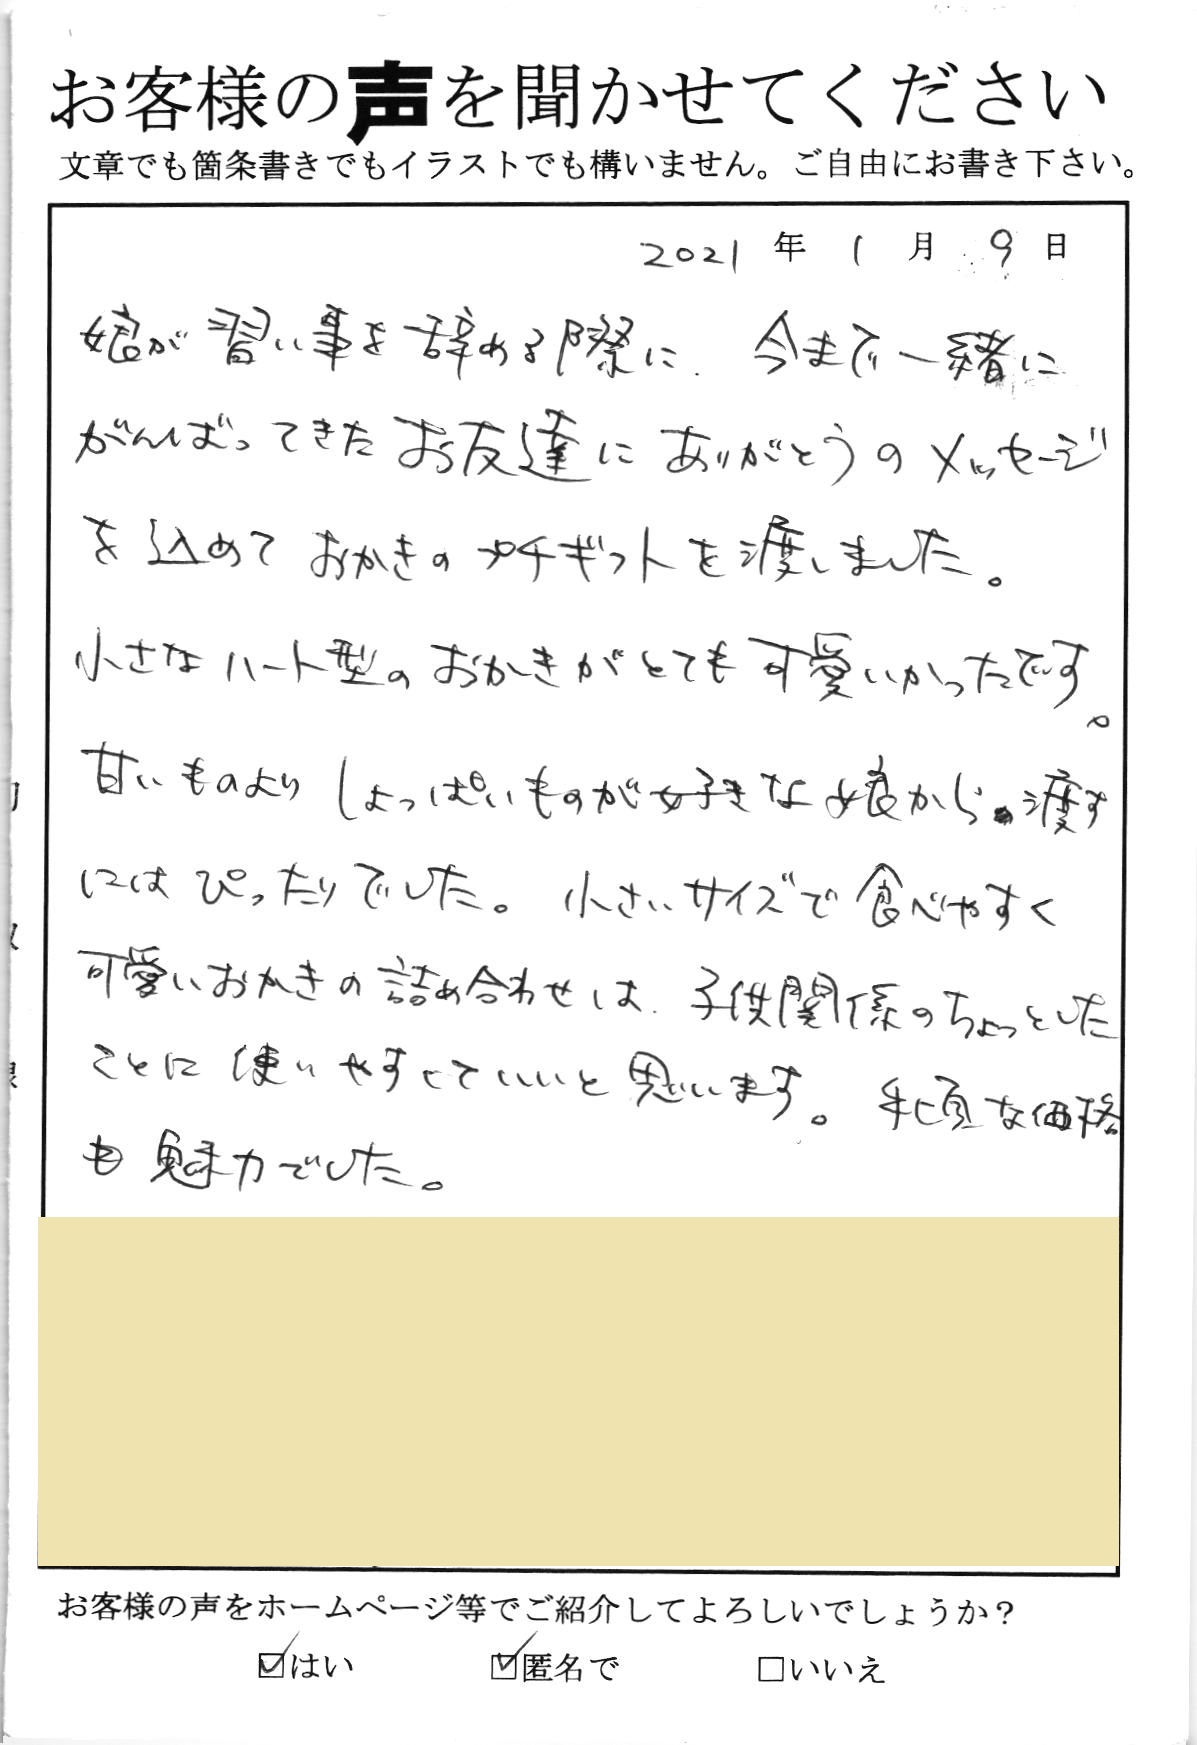 お客様の声を聞かせてください
文章でも箇条書きでもイラストでも構いません。ご自由にお書き下さい。
2021年1月9日
娘が習い事を辞める際に、今まで一緒に
がんばってきたお友達にありがとうのメッセージ
を込めておかきのプチギフトを渡しました。
小さなハート型のおかきがとても可愛いかったです。
甘いものよりしょっぱいものが好きな娘から渡す
にはぴったりでした。小さいサイズで食べやすく
可愛いおかきの詰め合わせは、子供関係のちょっとした
ことに使いやすくていいと思います。手頃な価格
も魅力でした。
お客様の声をホームページ等でご紹介してよろしいでしょうか?
☑はい ☑匿名で □いいえ